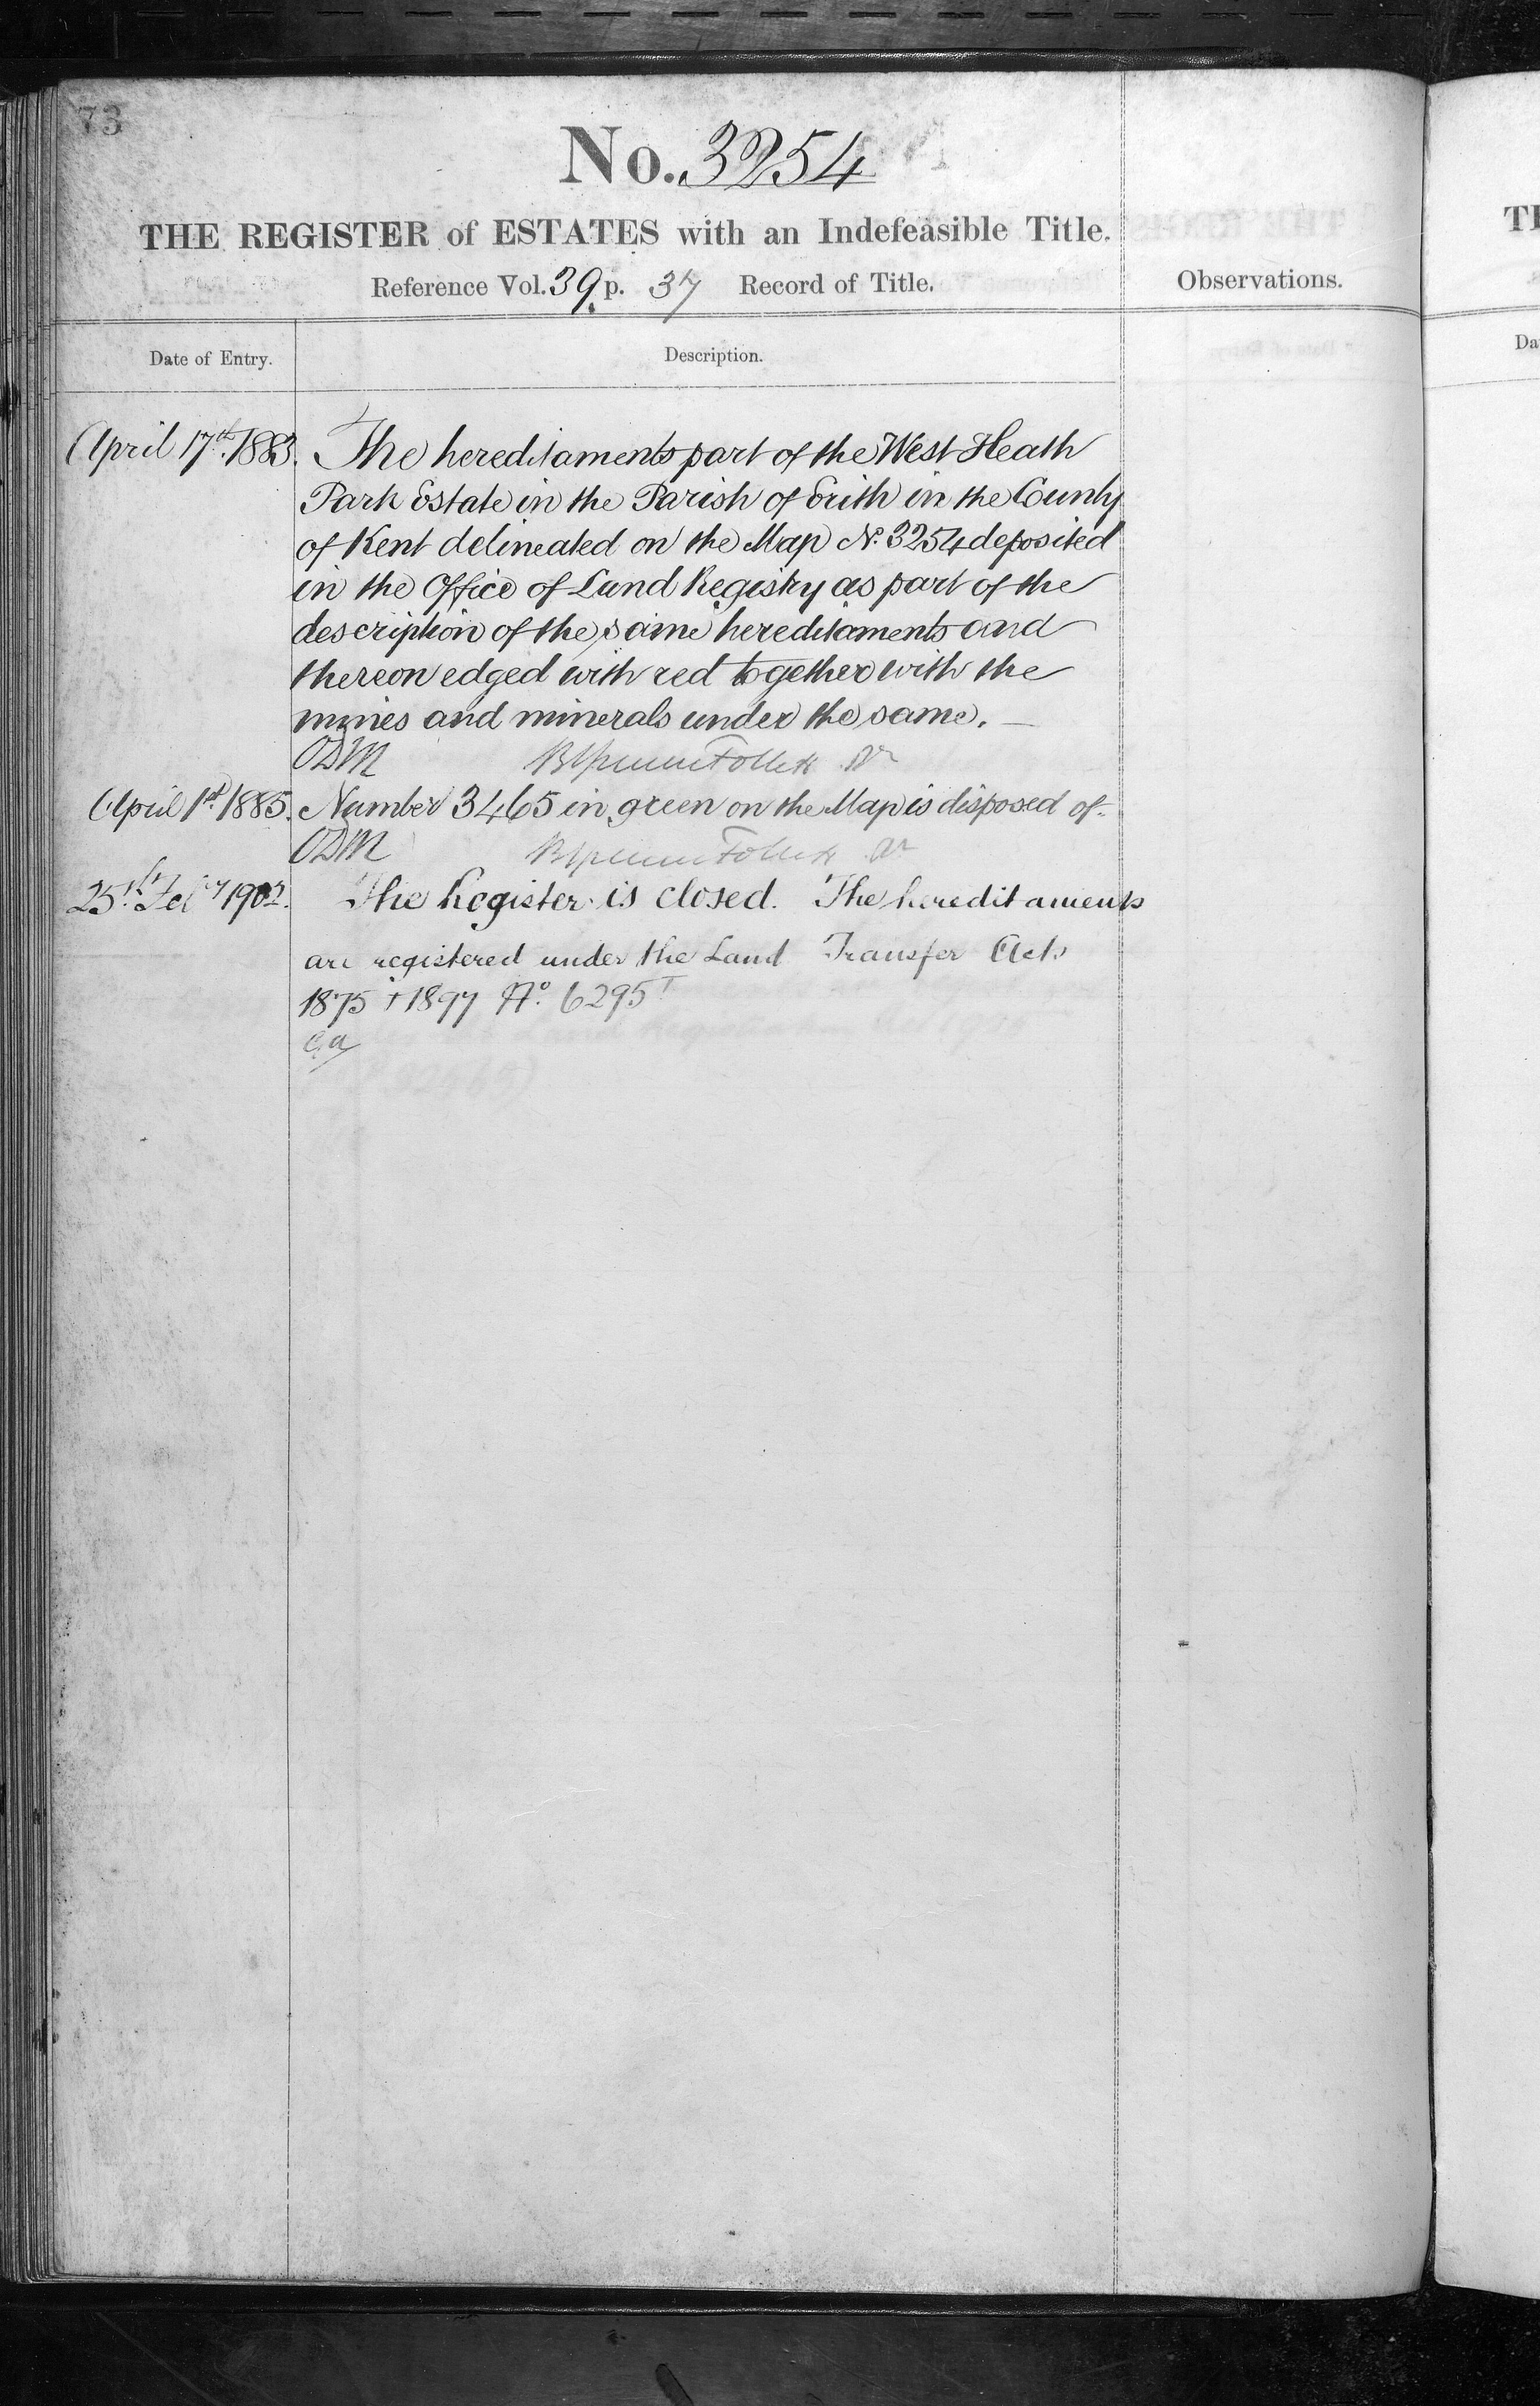 73
No. 3254
THE REGISTER of ESTATES with an Indefeasible Title.
Reference Vol. 39 p. 37 Record of Title.
Observations.
Date of Entry.
Description.
April 17th 1883. The hereditaments part of the West Heath
Park Estate in the Parish of Erith in the County
of Kent delineated on the Map No. 3254 deposited
in the Office of Land Registry as part of the
description of the same hereditaments and
thereon edged with red together with the
mines and minerals under the same.
ODM
April 1st 1885. Number 3465 in green on the Map is disposed of.
ODM
25th Feby 1902. The Register is closed. The hereditaments
are registered under the Land Transfer Acts
1875 + 1897 No. 6295